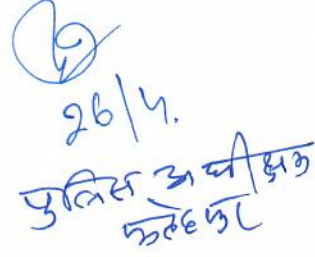 26/4.
पुलिस अधीक्षक
फतेहपुर